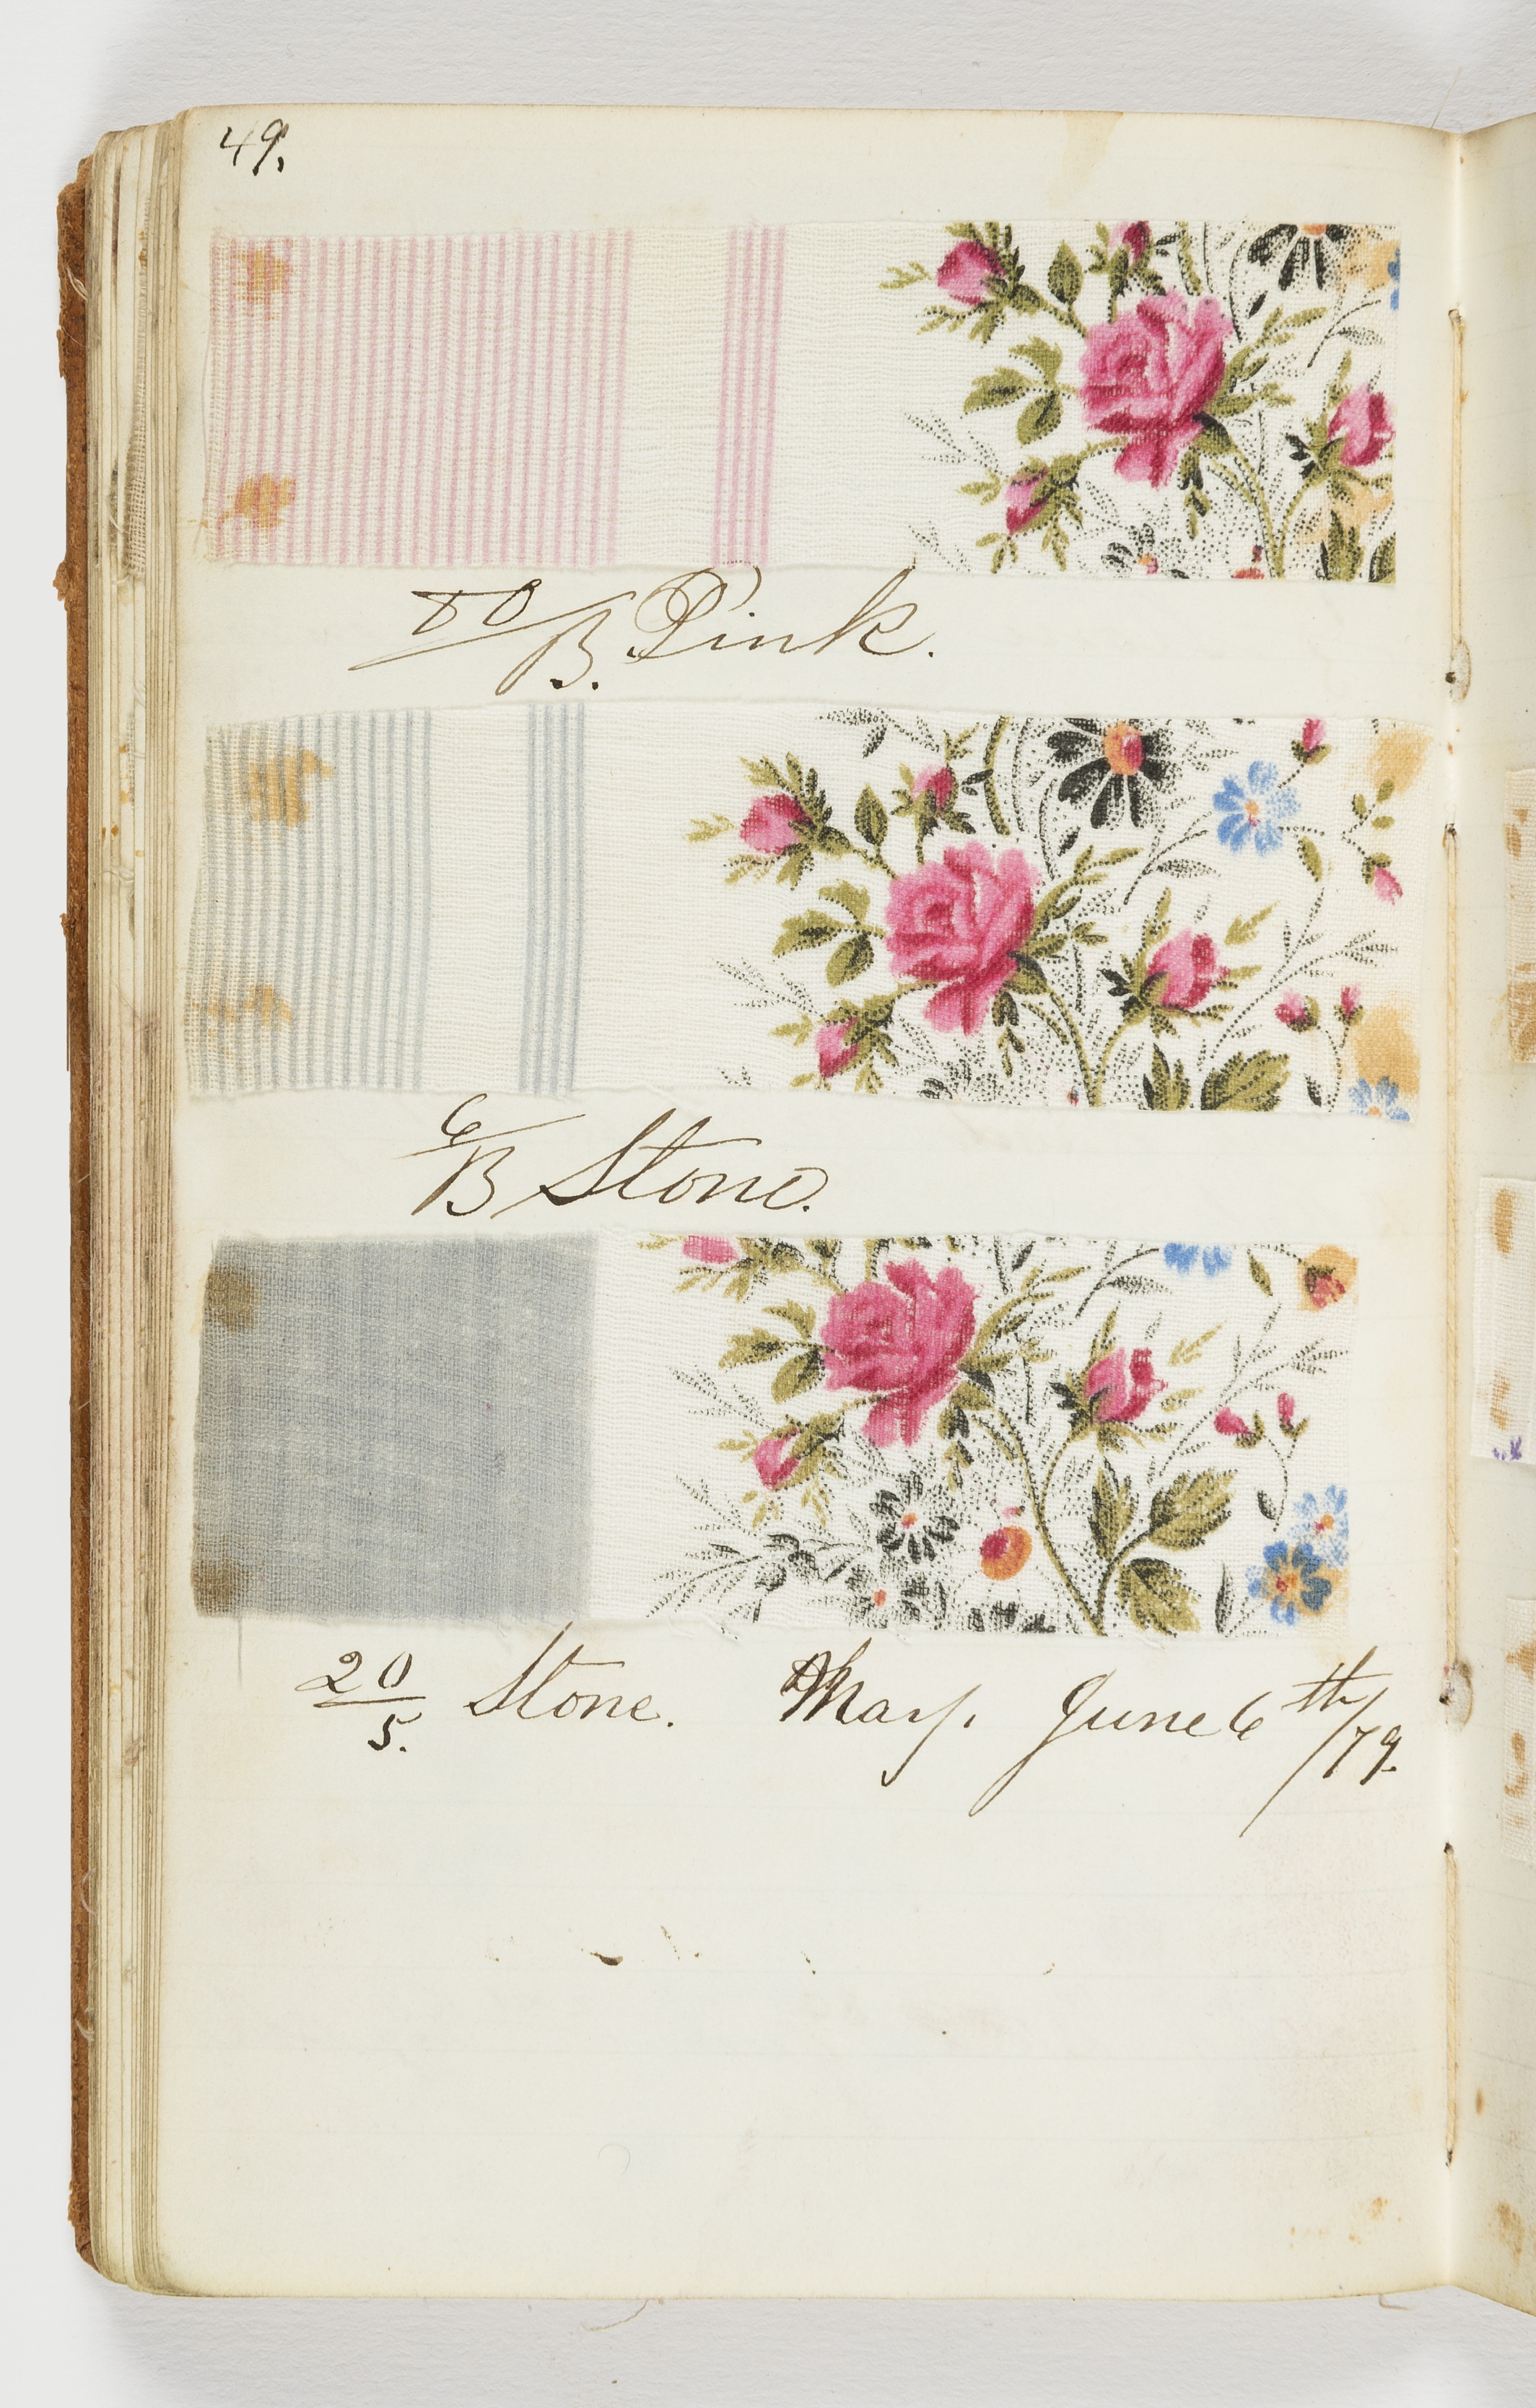 49.
80/B. Pink.
6/B Stone.
20/5. Stone. May. June 6th/79.